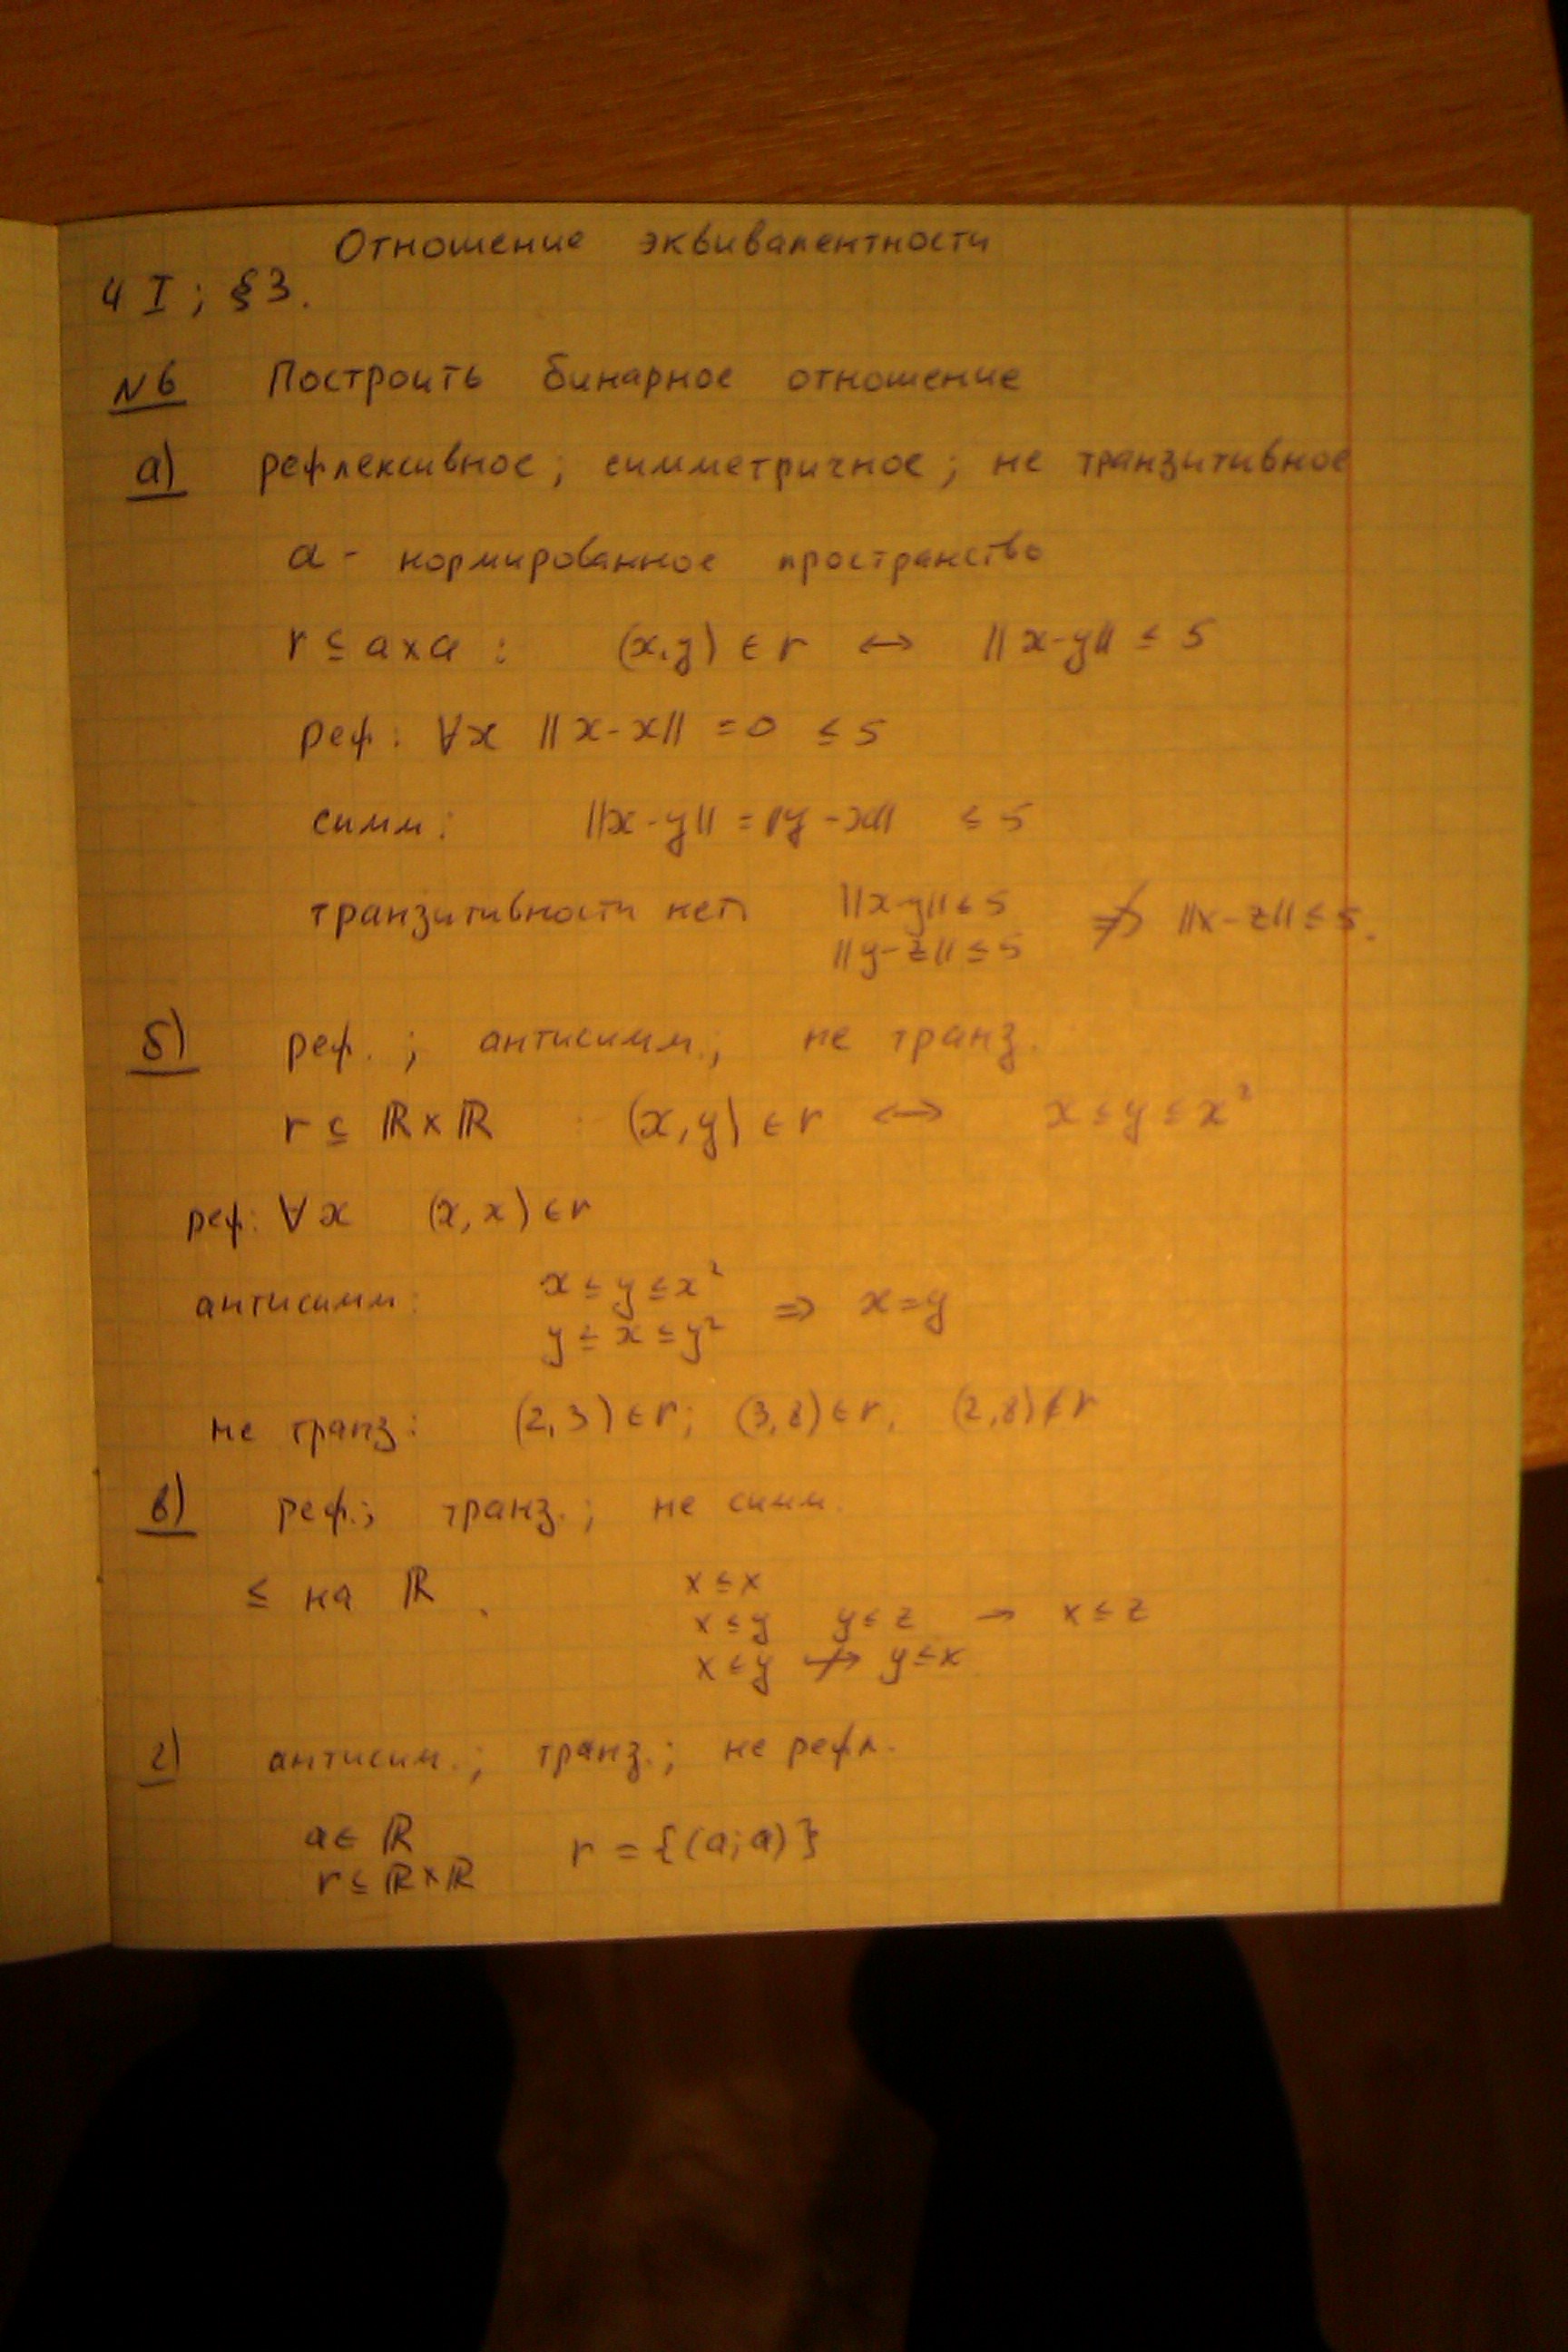 Отношение эквивалентности
Ч I ; §3.
№6 Построить бинарное отношение
а) рефлексивное ; симметричное ; не транзитивное
a - нормированное пространство
r ⊆ a×a : (x,y) ∈ r ↔ ||x-y|| ≤ 5
реф: ∀x ||x-x|| = 0 ≤ 5
симм: ||x-y|| = ||y-x|| ≤ 5
транзитивности нет ||x-y|| ≤ 5
||y-z|| ≤ 5 ⇏ ||x-z|| ≤ 5.
б) реф. ; антисимм.; не транз.
r ⊆ ℝ×ℝ (x,y) ∈ r ↔ x ≤ y ≤ x²
реф: ∀x (x,x) ∈ r
антисимм: x ≤ y ≤ x²
y ≤ x ≤ y² ⇒ x=y
не транз: (2,3) ∈ r; (3,8) ∈ r, (2,8) ∉ r
в) реф.; транз.; не симм.
≤ на ℝ. x ≤ x
x ≤ y y ≤ z → x ≤ z
x ≤ y ↛ y ≤ x
г) антисим.; транз.; не рефл.
a ∈ ℝ
r ⊆ ℝ×ℝ r = {(a;a)}